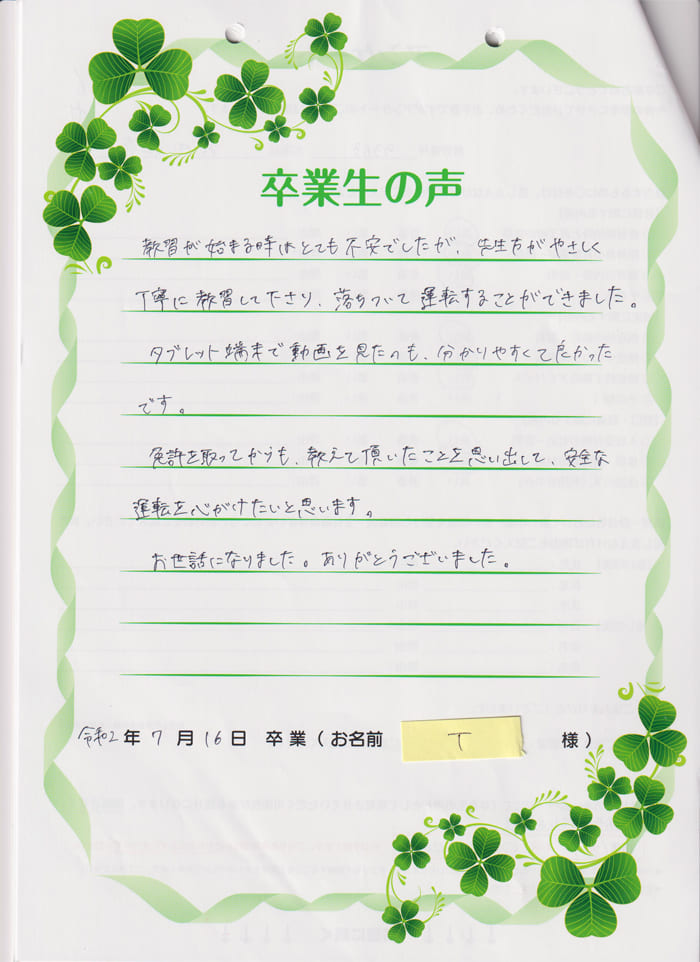 卒業生の声
教習が始まる時はとても不安でしたが、先生方がやさしく
丁寧に教習して下さり、落ちついて運転することができました。
タブレット端末で動画を見たのも、分かりやすくて良かった
です。
免許を取ってからも、教えて頂いたことを思い出して、安全な
運転を心がけたいと思います。
お世話になりました。ありがとうございました。
令和2年7月16日 卒業(お名前 T 様)